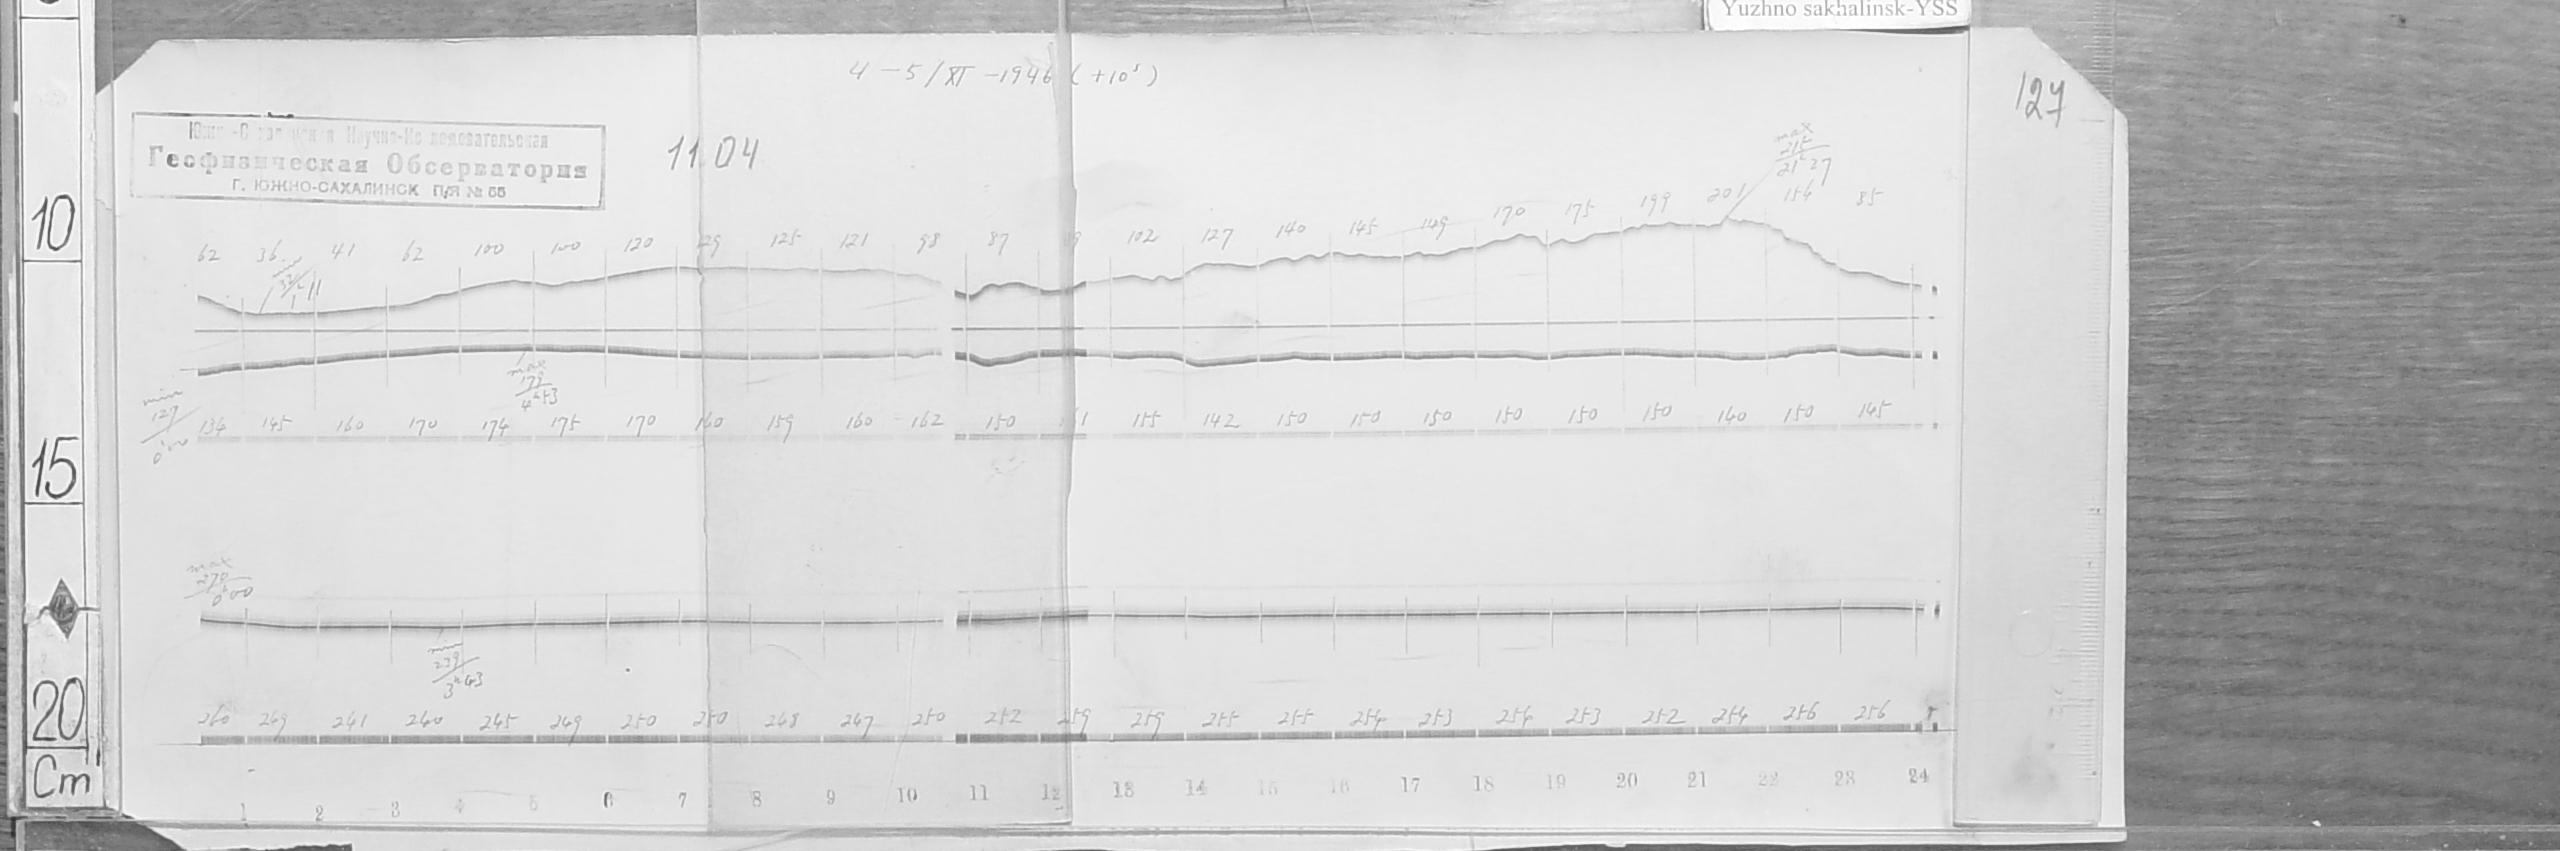 Yuzhno sakhalinsk-YSS
4-5/XI-1946 (+10ˢ)
127
Геофизическая Обсерватория
Г. ЮЖНО-САХАЛИНСК П/Я № 55
11.04
max
215
21ʰ27
62 36 41 62 100 100 120 129 125 121 98 87 102 127 140 145 149 170 175 199 201 154 85
max
179
4ʰ53
min
127
0ʰ00
134 145 160 170 174 175 170 160 159 160 162 150 155 142 150 150 150 150 150 150 140 150 145
max
270
0ʰ00
min
239
3ʰ43
260 249 241 240 245 249 250 250 248 247 250 252 259 259 255 255 254 253 254 253 252 254 256 256
1 2 3 4 5 6 7 8 9 10 11 12 13 14 15 16 17 18 19 20 21 22 23 24
10
15
20
Cm